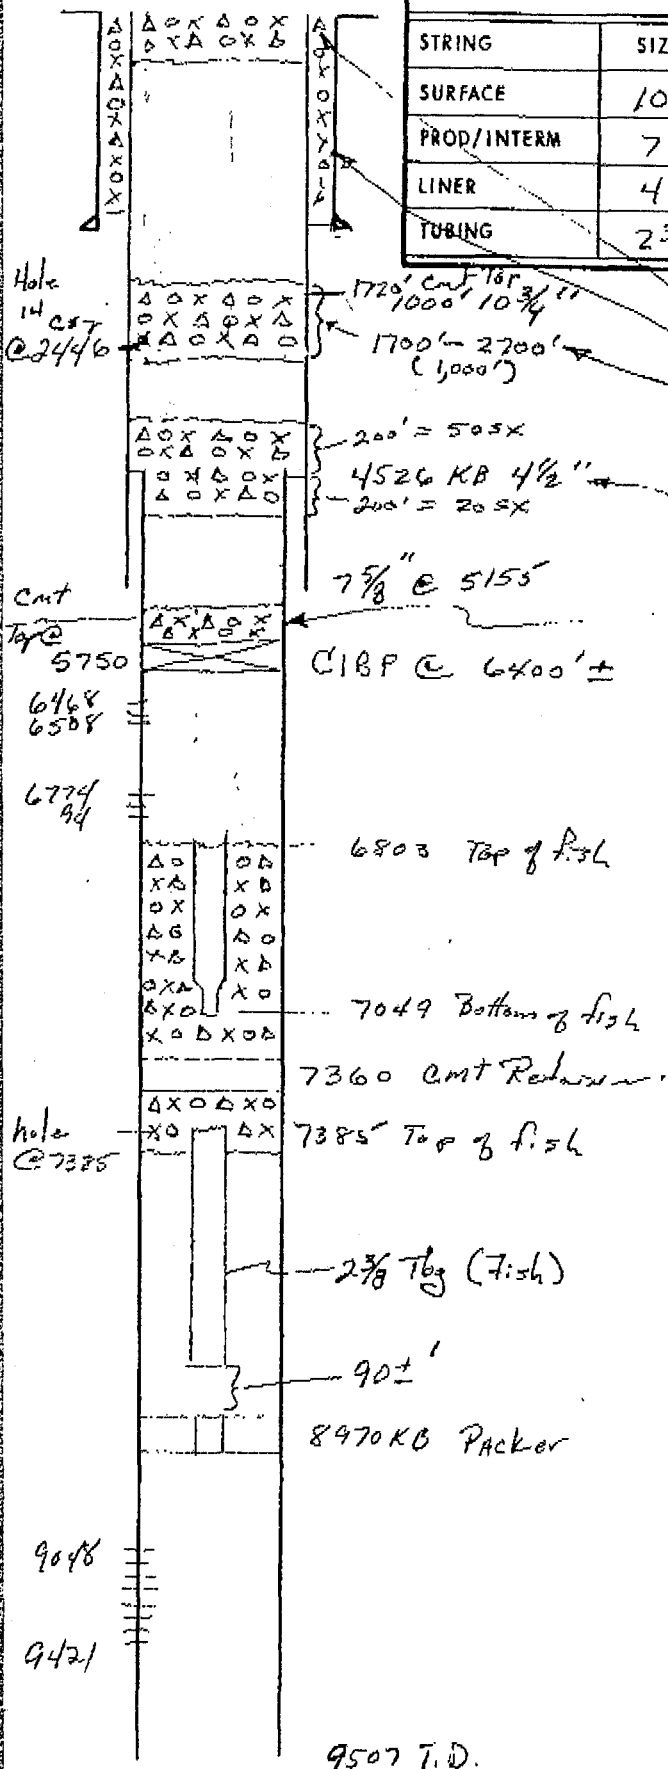 STRING SIZ
SURFACE 10
PROD/INTERM 7
LINER 4
TUBING 2 3
Hole
14
csg
@ 2446
1720' cmt Top
1000' 10 3/4"
1700' - 2700'
(1,000')
200' = 50 sx
4526 KB 4 1/2"
200' = 20 sx
7 5/8" @ 5155
Cmt
Top @
5750
CIBP @ 6400' ±
6468
6508
6774
94
6803 Top of fish
7049 Bottom of fish
7360 Cmt
hole
@ 7385
7385 Top of fish
2 3/8 Tbg (Fish)
90 ± '
8970 KB Packer
9048
9421
9507 T.D.